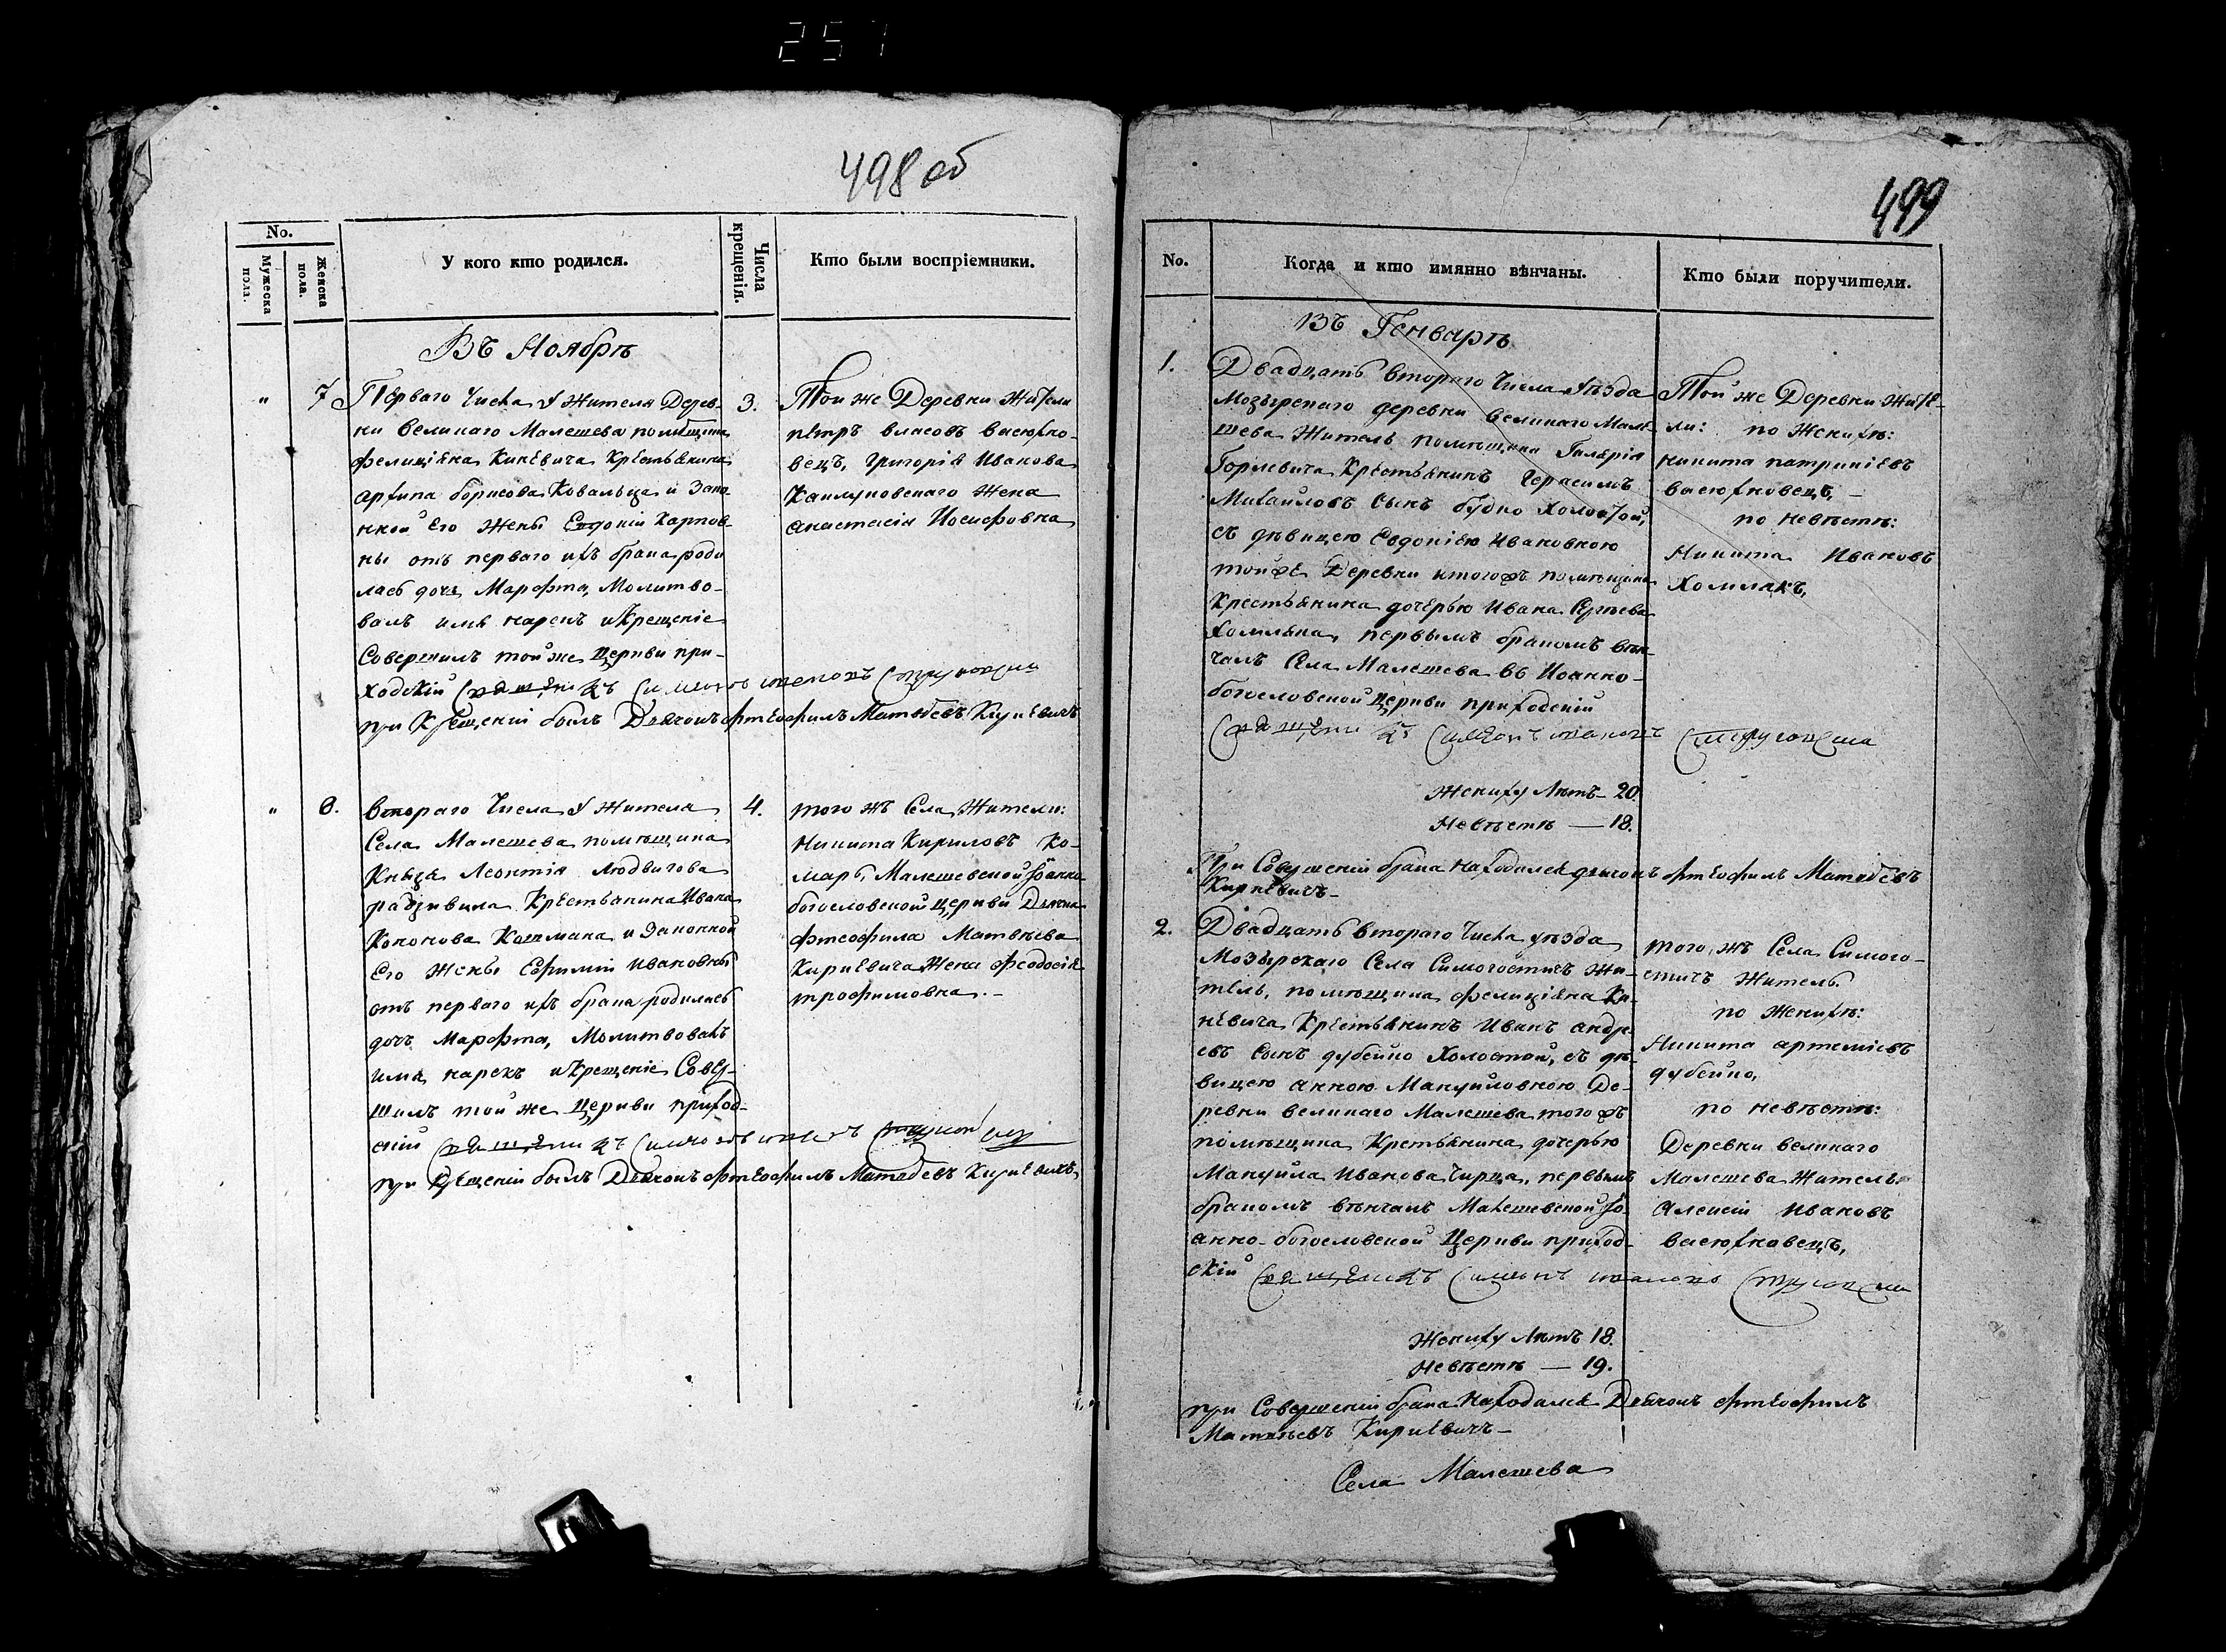 257
498 об
No.
Мужеска пола.
Женска пола.
У кого кто родился.
Числа крещенія.
Кто были воспріемники.
Въ Ноябрѣ
" 7
Перваго Числа У Жителя Дерев-
ни Великаго Малешева помѣщика
Фелиціяна Киневича Крестьянина
Архипа борисова Ковальца и Зако-
нной Его Жены Евдокіи Карпов-
ны отъ перваго ихъ брака роди
лась дочь Марфта, Молитво-
валъ имя нарекъ и Крещеніе
Совершилъ той же Церкви при-
ходскій Священникъ Симеонъ
при Крещеніи былъ Дьячокъ Фтеофилъ Матвѣевъ Киркевичъ
3.
Той же Деревни Жители
пётръ власовъ васюхно-
вецъ, григорія Иванова
Жена
анастасія Иосифовна
" 8.
втораго Числа У Жителя
Села Малешева помѣщика
Князя Леонтія Людвигова
радзивила Крестьянина Ивана
Кононова Кошмана и Законной
Его Жены Ефиміи Ивановны
отъ перваго ихъ брака родилась
дочь Марфта, Молитвовалъ
имя нарекъ и Крещеніе Совер-
шилъ той же Церкви приход-
скій Священникъ Симеонъ
при Крещеніи былъ Дьячокъ Фтеофилъ Матвѣевъ Киркевичъ
4.
того жъ Села Жители:
Никита Кириловъ Ко-
маръ, Малешевской Іоанно
богословской Церкви Дьячка
Фтеофила Матвѣева
Киркевича Жена Феодосія
трофимовна. -
499
No.
Когда и кто имянно вѣнчаны.
Кто были поручители.
Въ Генварѣ
1.
Двадцать втораго Числа Уѣзда
Мозырскаго деревни великаго Мале
шева Житель помѣщика Галярія
Горлевича Крестьянинъ Герасимъ
Михайловъ Сынъ будко Холостой,
съ дѣвицею Евдокіею Ивановною
тойжѣ Деревни итогожъ помѣщика
Крестьянина дочерью Ивана Сергѣева
Хомляка, первымъ бракомъ вѣн-
чалъ Села Малешева въ Иоанно-
богословской Церкви приходскій
Священникъ Симеонъ
Жениху Лѣтъ - 20.
Невѣстѣ — 18.
При Совершеніи брака находился дьячокъ Фтеофилъ Матвѣевъ
Киркевичъ -
Той же Деревни Жите-
ли: по Женихѣ:
никита патрикіевъ
васюхновецъ, -
по невѣстѣ:
Никита Ивановъ
Хомлякъ,
2.
Двадцать втораго Числа уѣзда
Мозырскаго Села Симогостичъ Жи-
тель, помѣщика Фелиціяна Ки-
невича Крестьянинъ Иванъ андре-
евъ Сынъ дубейко Холостой, съ дѣ-
вицею анною Мануйловною Де-
ревни великаго Малешева тогожъ
помѣщика Крестьянина дочерью
Мануйла Иванова Чирца, первымъ
бракомъ вѣнчалъ Малешевской Іо-
анно-богословской Церкви приход-
скій Священникъ Симеонъ
Жениху Лѣтъ 18.
Невѣстѣ — 19.
при Совершеніи брака находился Дьячокъ Фтеофилъ
Матвѣевъ Киркевичъ -
Села Малешева
того жъ Села Симого-
стичъ Житель.
по Женихѣ:
Никита артеміевъ
дубейко,
по невѣстѣ:
Деревни великаго
Малешева Житель.
Алексій Ивановъ
васюхновецъ,